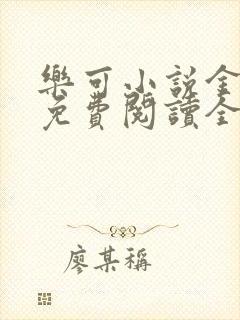 樂可小說全
免費閱讀全
廖某稱